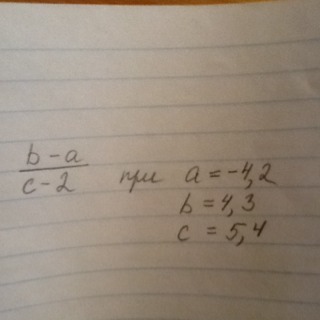 b-a
c-2 при a=-4,2
b=4,3
c=5,4